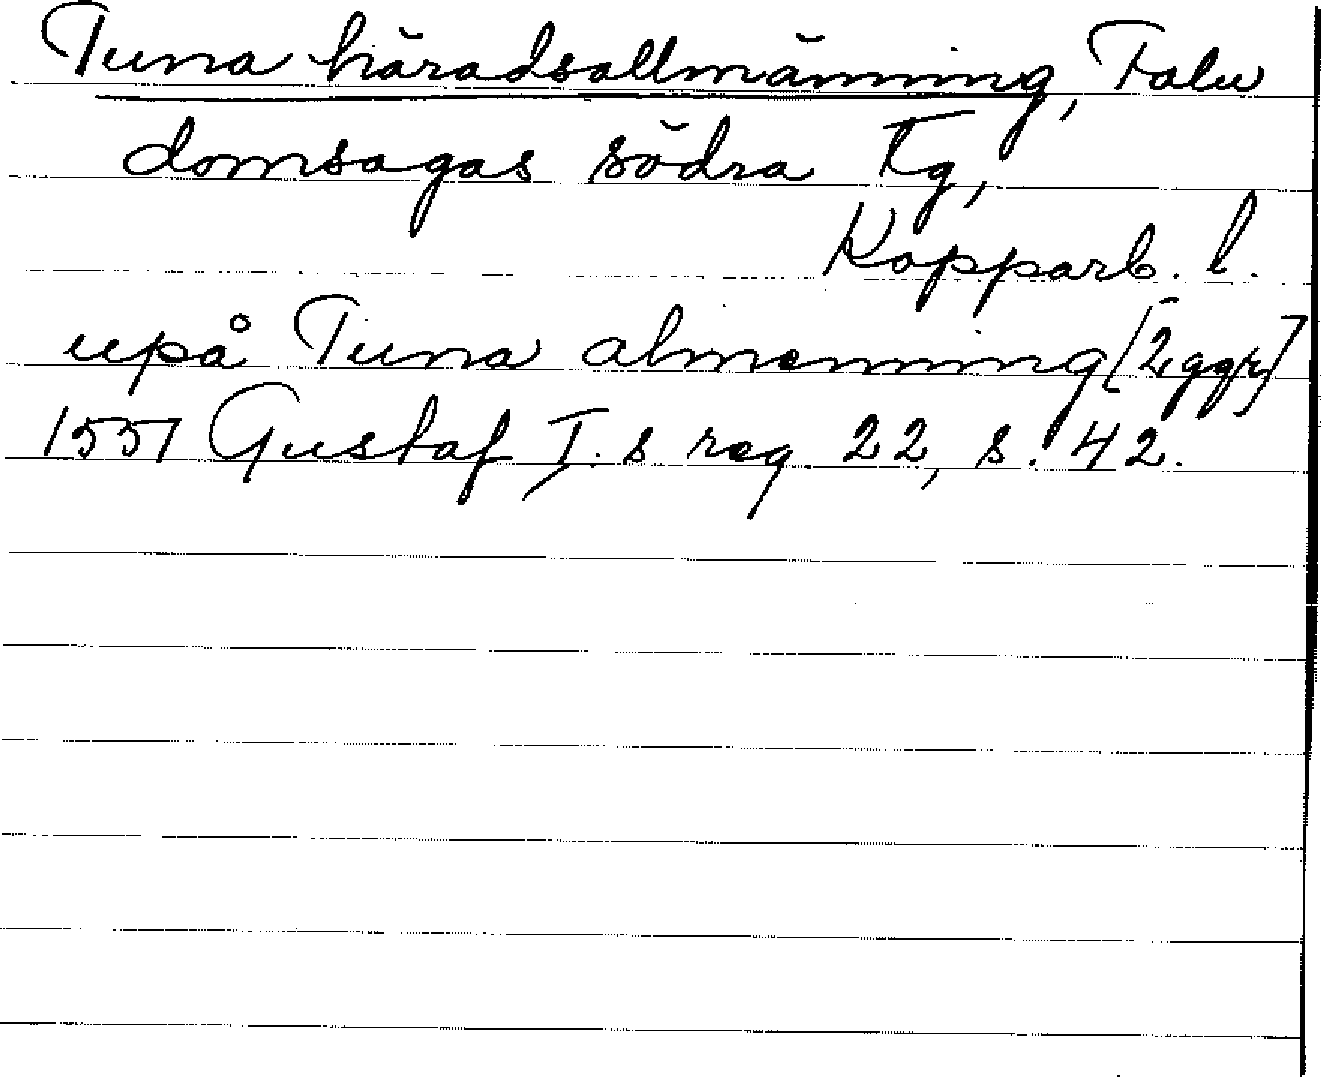 Tuna häradsallmänning, Falu
domsagas södra Tg,
Kopparb. l.
upå Tuna almenning [2 ggr]
1551 Gustaf I.s reg 22, s. 42.